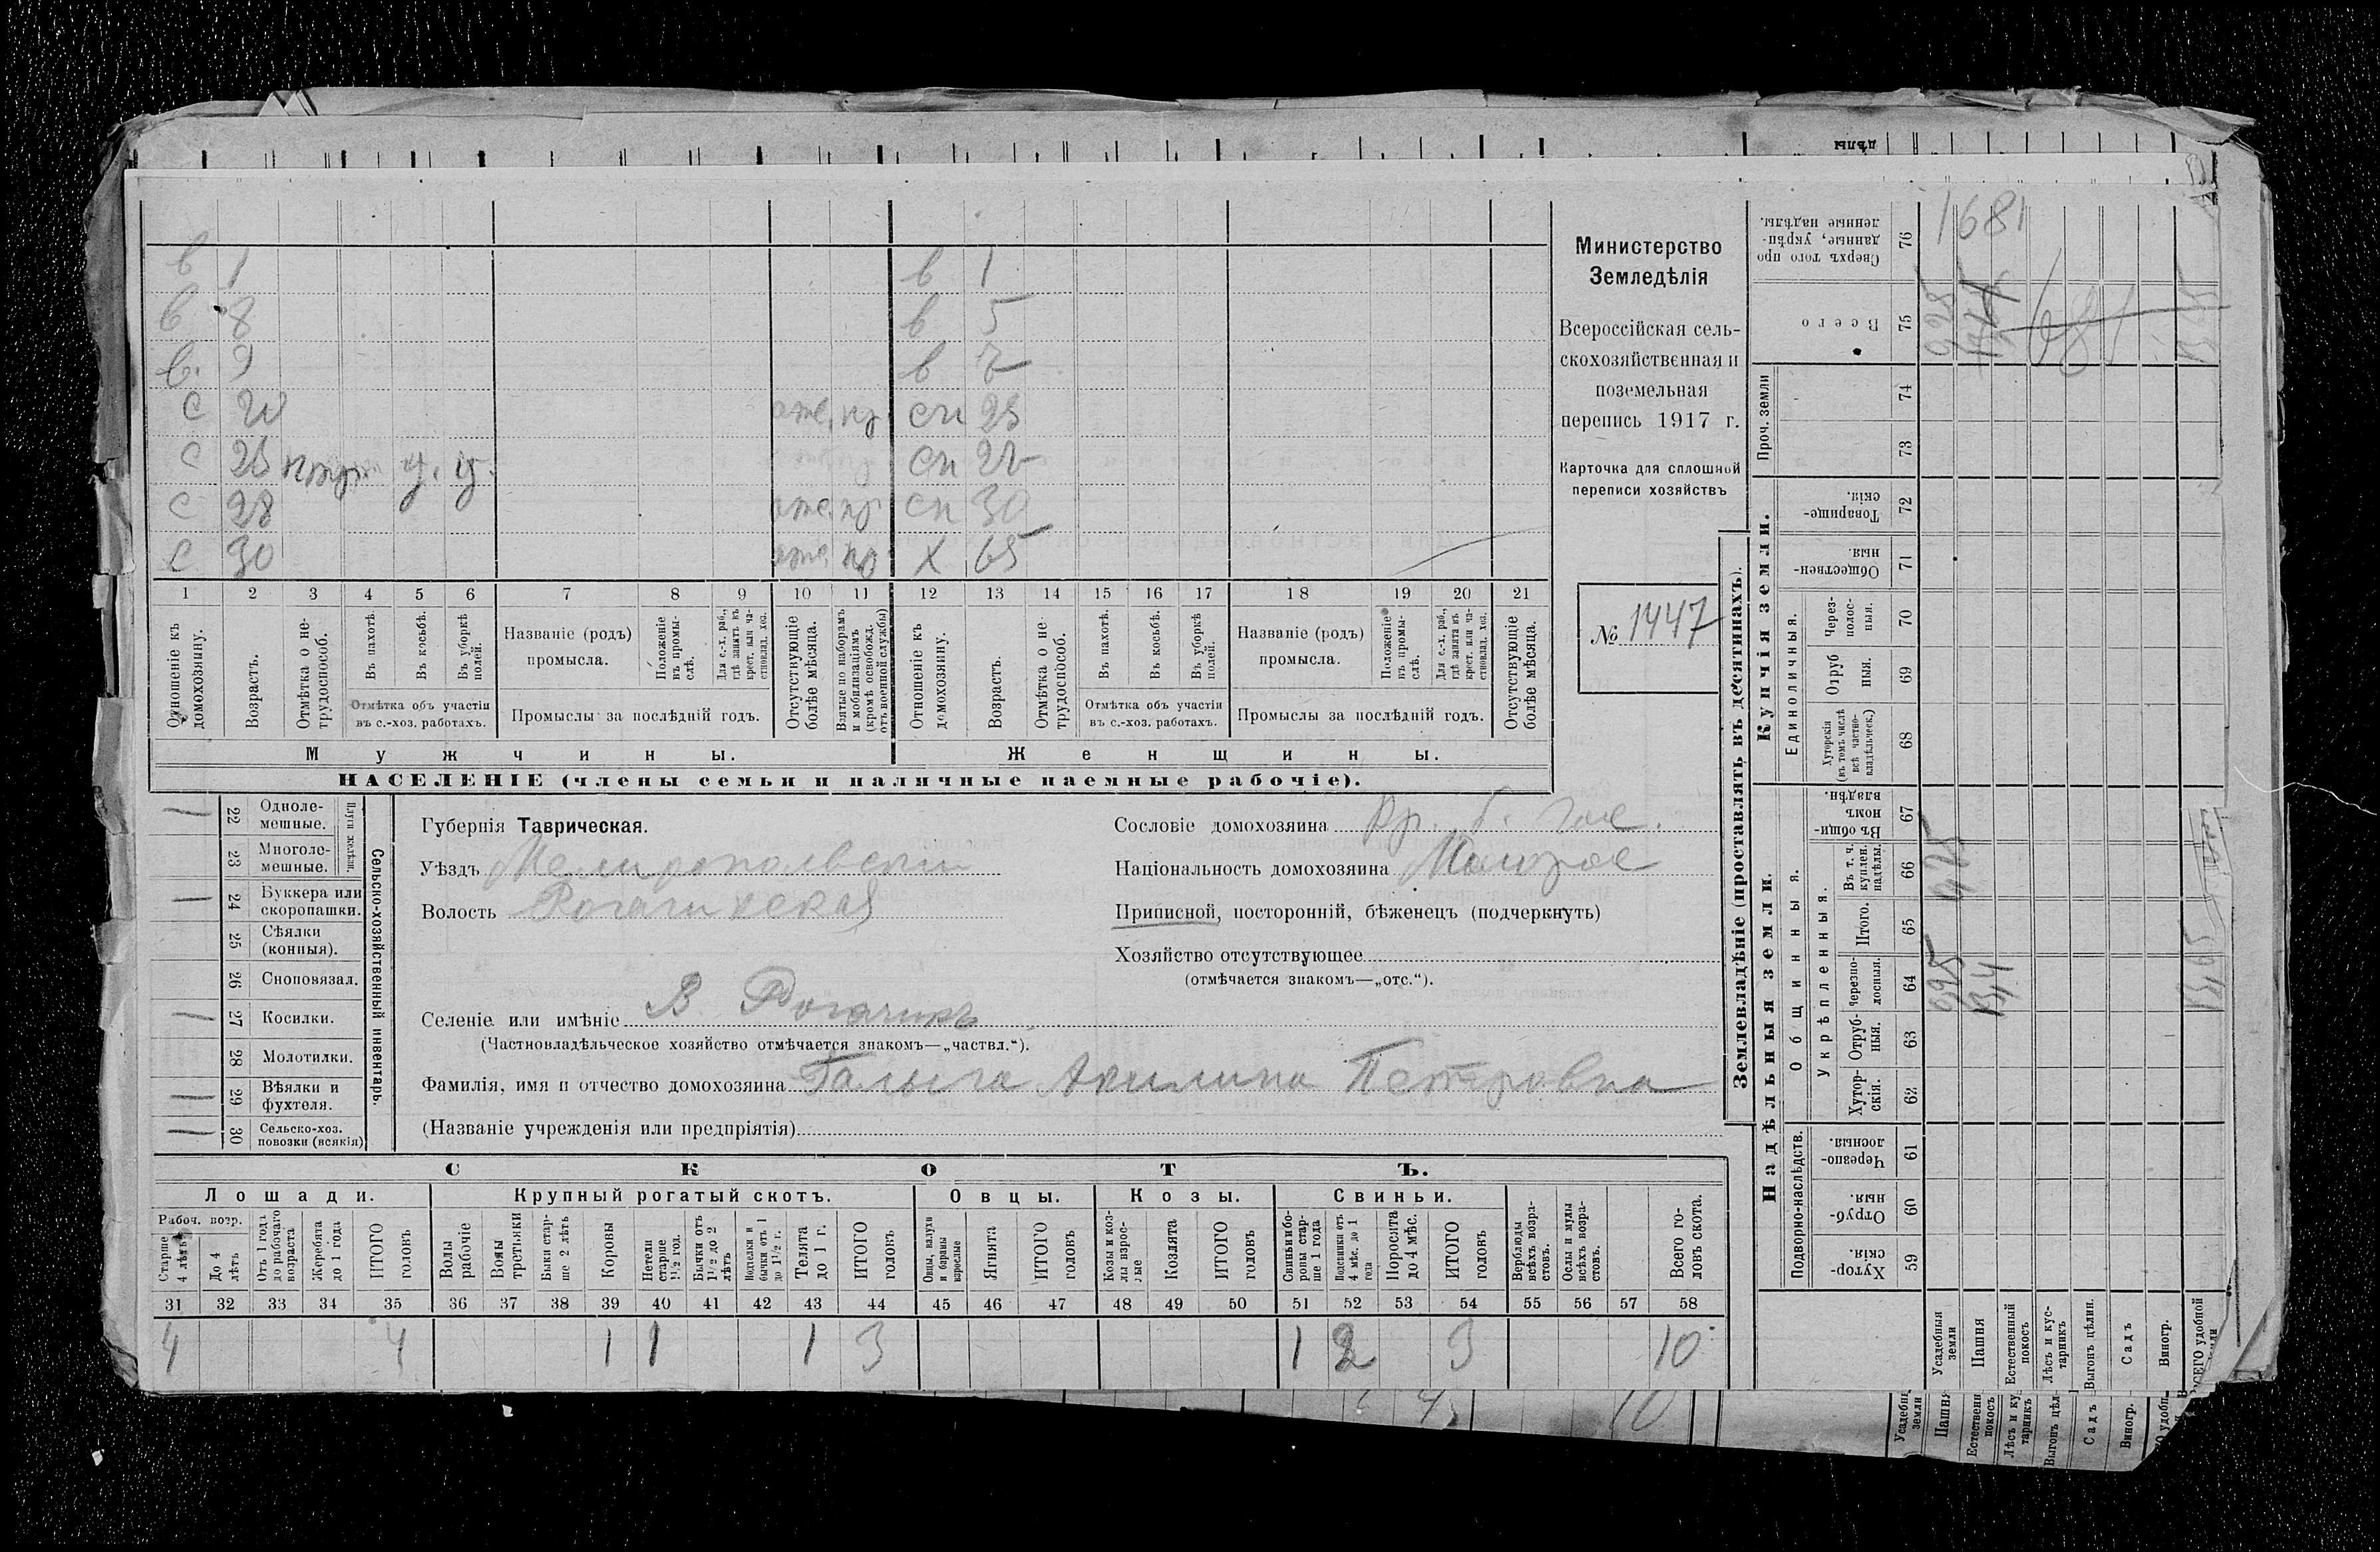 в 1 в 1
в 8 в 5
в. 9 в 7
с отс. сн 25
с 26 сн 22
с 28 сн 30
с 30 х 65
1 2 3 4 5 6 7 8 9 10 11 12 13 14 15 16 17 18 19 20 21
Отношеніе къ домохозяину.
Возрастъ.
Отмѣтка о не-трудоспособ.
Въ пахотѣ.
Въ косьбѣ.
Въ уборкѣ полей.
Отмѣтка объ участіи
въ с.-хоз. работахъ.
Названіе (родъ)
промысла.
Положеніе въ промы-слѣ.
Для с.-х. раб., гдѣ занятъ въ крест. или ча-стновлад. хоз.
Промыслы за послѣдній годъ.
Отсутствующіе болѣе мѣсяца.
Взятые по наборамъ и мобилизаціямъ (кромѣ освобожд. отъ военной службы)
Отношеніе къ домохозяину.
Возрастъ.
Отмѣтка о не-трудоспособ.
Въ пахотѣ.
Въ косьбѣ.
Въ уборкѣ полей.
Отмѣтка объ участіи
въ с.-хоз. работахъ.
Названіе (родъ)
промысла.
Положеніе въ промы-слѣ.
Для с.-х. раб., гдѣ занята въ крест. или ча-стновлад. хоз.
Промыслы за послѣдній годъ.
Отсутствующіе болѣе мѣсяца.
Мужчины.
Женщины.
НАСЕЛЕНІЕ (члены семьи и наличные наемные рабочіе).
Министерство
Земледѣлія
Всероссійская сель-
скохозяйственная и
поземельная
перепись 1917 г.
Карточка для сплошной
переписи хозяйствъ
№ 1447
22 Одноле-
мешные.
23 Многоле-
мешные.
Плуги желѣзн.
24 Буккера или
скоропашки.
25 Сѣялки
(конныя).
26 Сноповязал.
27 Косилки.
28 Молотилки.
29 Вѣялки и
фухтеля.
30 Сельско-хоз.
повозки (всякія)
Сельско-хозяйственный инвентарь.
Губернія Таврическая.
Уѣздъ Мелитопольскій
Волость Рогачикская
Селеніе или имѣніе В Рогачикъ
(Частновладѣльческое хозяйство отмѣчается знакомъ—„частвл.“).
Фамилія, имя и отчество домохозяина Галыга Акилина Петровна
(Названіе учрежденія или предпріятія)
Сословіе домохозяина кр. б. гос.
Національность домохозяина Малорос
Приписной, посторонній, бѣженецъ (подчеркнуть)
Хозяйство отсутствующее
(отмѣчается знакомъ—„отс.“).
СКОТЪ.
Лошади. Крупный рогатый скотъ. Овцы. Козы. Свиньи.
Рабоч. возр.
Старше 4 лѣтъ
До 4 лѣтъ
Отъ 1 года до рабочаго возраста
Жеребята до 1 года
ИТОГО головъ
Волы рабочіе
Волы третьяки
Быки стар-ше 2 лѣтъ
Коровы
Нетели старше 1½ год.
Бычки отъ 1½ до 2 лѣтъ
Подтелки и бычки отъ 1 до 1½ г.
Телята до 1 г.
ИТОГО головъ
Овцы, валухи и бараны взрослые
Ягнята
ИТОГО головъ
Козы и коз-лы взрос-лые
Козлята
ИТОГО головъ
Свиньи и бо-ровы стар-ше 1 года
Подсвинки отъ 4 мѣс. до 1 года
Поросята до 4 мѣс.
ИТОГО головъ
Верблюды всѣхъ возра-стовъ.
Ослы и мулы всѣхъ возра-стовъ.
Всего го-ловъ скота.
31 32 33 34 35 36 37 38 39 40 41 42 43 44 45 46 47 48 49 50 51 52 53 54 55 56 57 58
4 4 1 1 1 3 1 2 3 10
Землевладѣніе (проставлять въ десятинахъ).
Надѣльныя земли.
Купчія земли.
Проч. земли
Подворно-наслѣдств.
Общинныя.
Укрѣпленныя.
Единоличныя.
Хутор-скія. 59
Отруб-ныя. 60
Черезпо-лосныя. 61
Хутор-скія. 62
Отруб-ныя. 63
Черезпо-лосныя. 64
Итого. 65
Въ т. ч. куплен. надѣлы. 66
Въ общи-номъ владѣн. 67
Хуторскія (въ томъ числѣ всѣ частно-владѣльческ.) 68
Отруб ныя. 69
Через-полос-ныя. 70
Обществен-ныя. 71
Товарище-скія. 72
73
74
Всего 75
Сверхъ того про данные, укрѣп-ленные надѣлы. 76
1681
Усадебныя земли
Пашня
Естественный покосъ
Лѣсъ и кус-тарникъ
Выгонъ цѣлин.
Садъ
Виногр.
ВСЕГО удобной
дѣлы
10
Усадебн земли
Пашня
Естественн покосъ
Лѣсъ и ку тарникъ
Выгонъ цѣл
Садъ
Виногр.